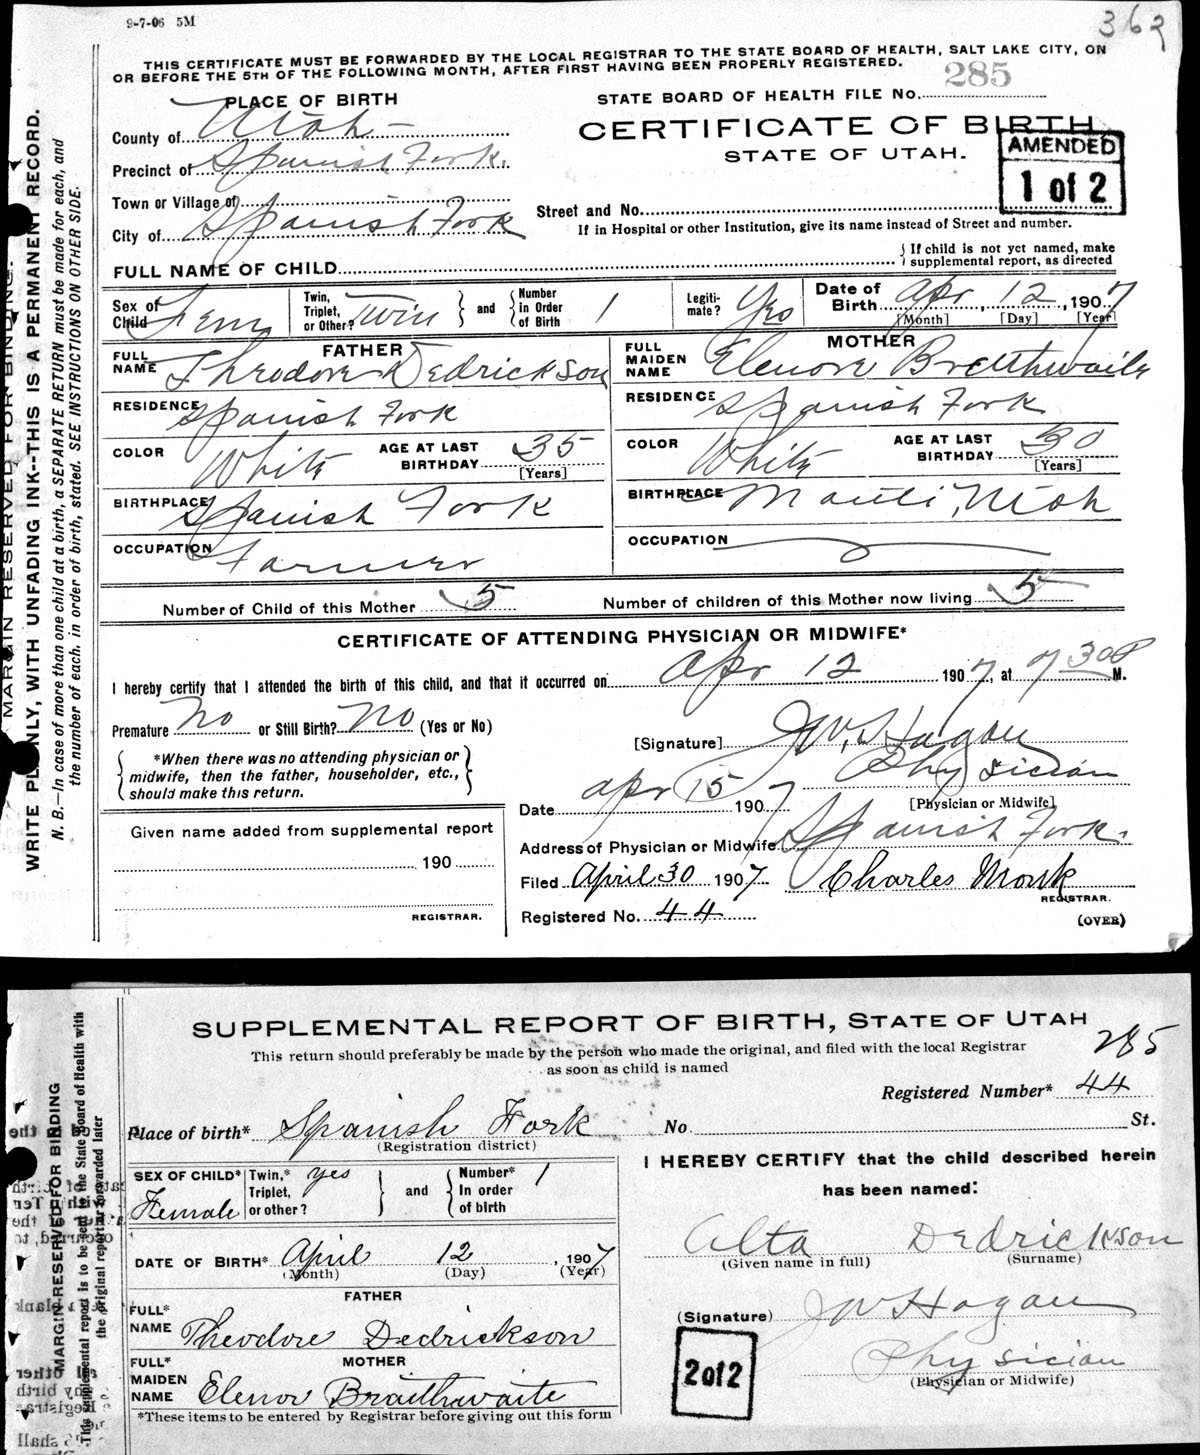 9-7-06 5M
362
THIS CERTIFICATE MUST BE FORWARDED BY THE LOCAL REGISTRAR TO THE STATE BOARD OF HEALTH, SALT LAKE CITY, ON
OR BEFORE THE 5TH OF THE FOLLOWING MONTH, AFTER FIRST HAVING BEEN PROPERLY REGISTERED.
285
PLACE OF BIRTH
STATE BOARD OF HEALTH FILE No.
County of Utah
CERTIFICATE OF BIRTH
STATE OF UTAH.
AMENDED
1 of 2
Precinct of Spanish Fork.
Town or Village of
City of Spanish Fork
Street and No.
If in Hospital or other Institution, give its name instead of Street and number.
FULL NAME OF CHILD
If child is not yet named, make
supplemental report, as directed
Sex of Child Fem
Twin, Triplet, or Other? Twin
and
Number in Order of Birth 1
Legitimate? Yes
Date of Birth Apr 12, 1907
[Month] [Day] [Year]
FATHER
FULL NAME Theodore Dedrickson
RESIDENCE Spanish Fork
COLOR White
AGE AT LAST BIRTHDAY 35
[Years]
BIRTHPLACE Spanish Fork
OCCUPATION Farmer
MOTHER
FULL MAIDEN NAME Elenore Braithwaite
RESIDENCE Spanish Fork
COLOR White
AGE AT LAST BIRTHDAY 30
[Years]
BIRTHPLACE Manti, Utah
OCCUPATION
Number of Child of this Mother 5
Number of children of this Mother now living 5
CERTIFICATE OF ATTENDING PHYSICIAN OR MIDWIFE*
I hereby certify that I attended the birth of this child, and that it occurred on Apr 12 1907, at 7 30 P M.
Premature No or Still Birth? No (Yes or No)
*When there was no attending physician or
midwife, then the father, householder, etc.,
should make this return.
[Signature] J W. Hagan
Physician
Date Apr 15 1907
[Physician or Midwife]
Given name added from supplemental report
190
REGISTRAR.
Address of Physician or Midwife Spanish Fork.
Filed April 30 1907 Charles Monk
REGISTRAR.
Registered No. 44
(OVER)
MARGIN RESERVED FOR BINDING.
WRITE PLAINLY, WITH UNFADING INK--THIS IS A PERMANENT RECORD.
N. B.—In case of more than one child at a birth, a SEPARATE RETURN must be made for each, and
the number of each. in order of birth, stated. SEE INSTRUCTIONS ON OTHER SIDE.
SUPPLEMENTAL REPORT OF BIRTH, STATE OF UTAH
This return should preferably be made by the person who made the original, and filed with the local Registrar
as soon as child is named
285
Registered Number* 44
Place of birth* Spanish Fork No. St.
(Registration district)
SEX OF CHILD* Female
Twin,* Triplet, or other? yes
and
Number* In order of birth 1
DATE OF BIRTH* April 12, 1907
(Month) (Day) (Year)
FATHER
FULL* NAME Theodore Dedrickson
MOTHER
FULL* MAIDEN NAME Elenor Braithwaite
*These items to be entered by Registrar before giving out this form
I HEREBY CERTIFY that the child described herein
has been named:
Alta Dedrickson
(Given name in full) (Surname)
(Signature) J W Hagan
2 of 2
Physician
(Physician or Midwife)
MARGIN RESERVED FOR BINDING
This supplemental report is to be sent to the State Board of Health with
the original report or forwarded later